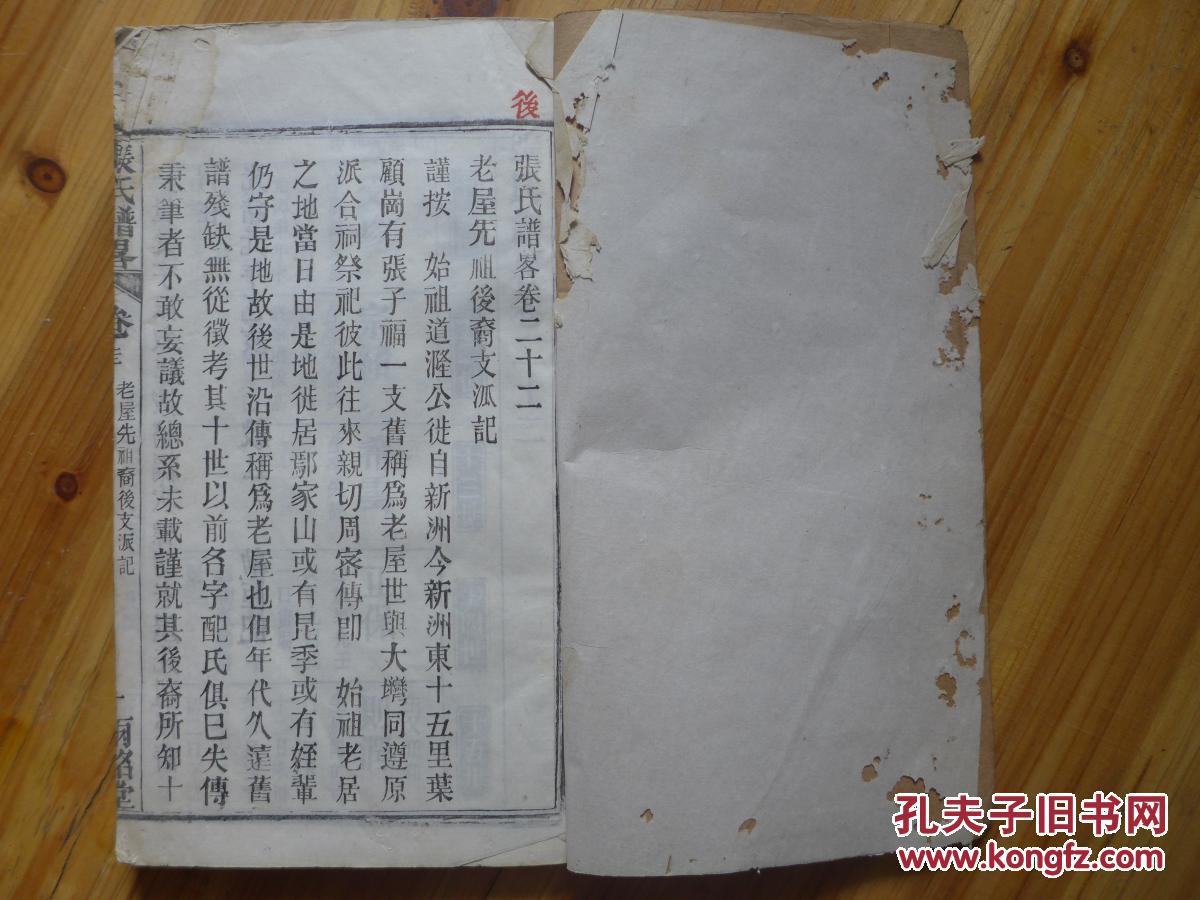 後
張氏譜畧卷二十二
老屋先祖後裔支派記
謹按　始祖道溼公徙自新洲今新洲東十五里葉
顧崗有張子福一支舊稱爲老屋世與大塆同遵原
派合祠祭祀彼此往來親切周密傳即　始祖老居
之地當日由是地徙居鄢家山或有昆季或有姪輩
仍守是地故後世沿傳稱爲老屋也但年代久遠舊
譜殘缺無從徵考其十世以前名字配氏俱已失傳
秉筆者不敢妄議故總系未載謹就其後裔所知十
張氏譜畧
卷
老屋先祖裔後支派記
一
百銘堂
孔夫子旧书网
www.kongfz.com